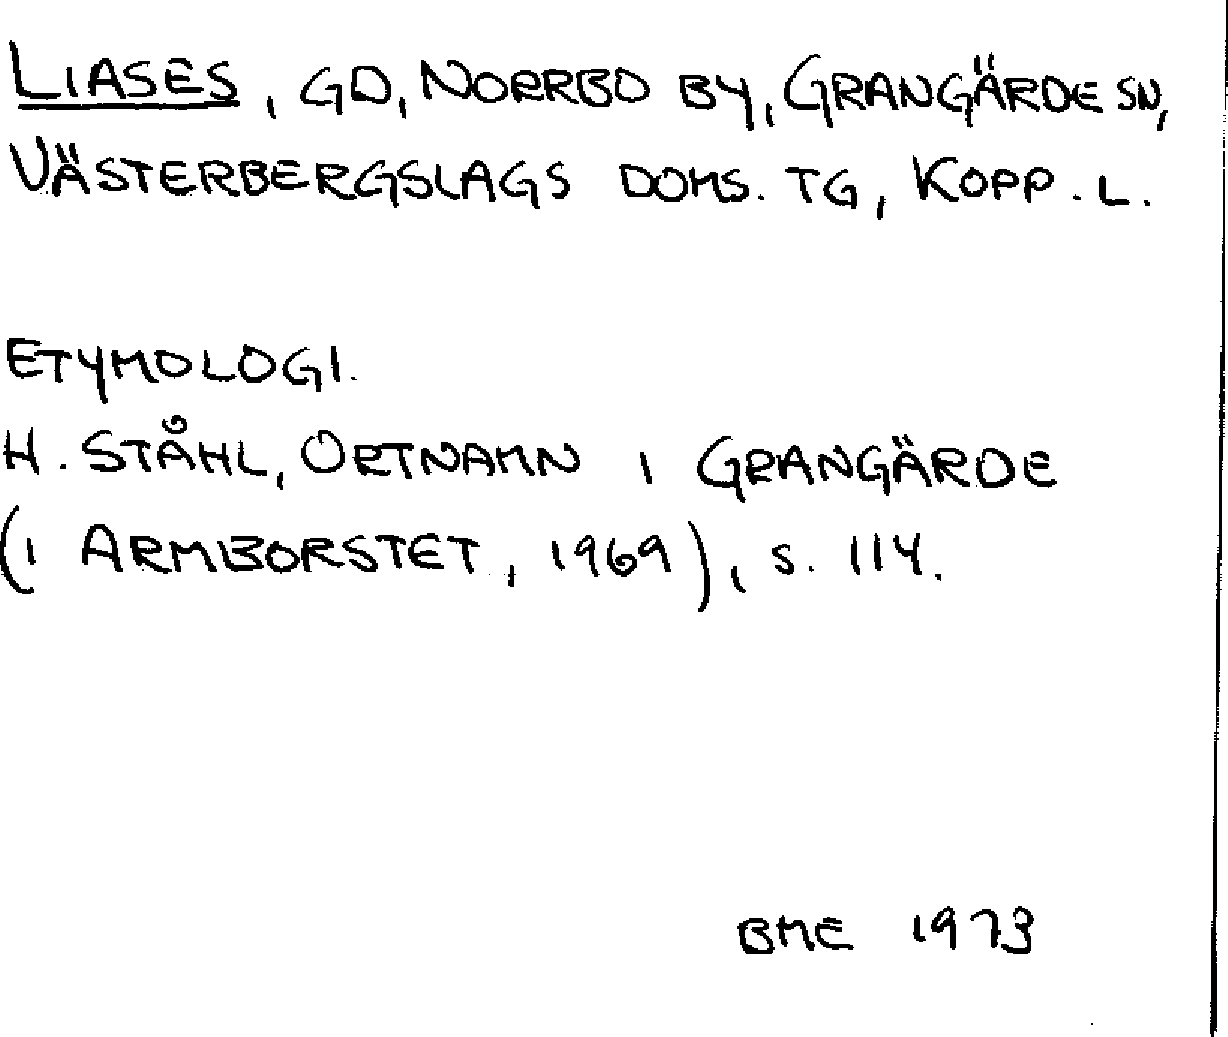 LIASES, GD, NORRBO BY, GRANGÄRDE SN,
VÄSTERBERGSLAGS DOMS. TG, KOPP. L.
ETYMOLOGI.
H. STÅHL, ORTNAMN I GRANGÄRDE
(I ARMBORSTET, 1969), S. 114.
BME 1973